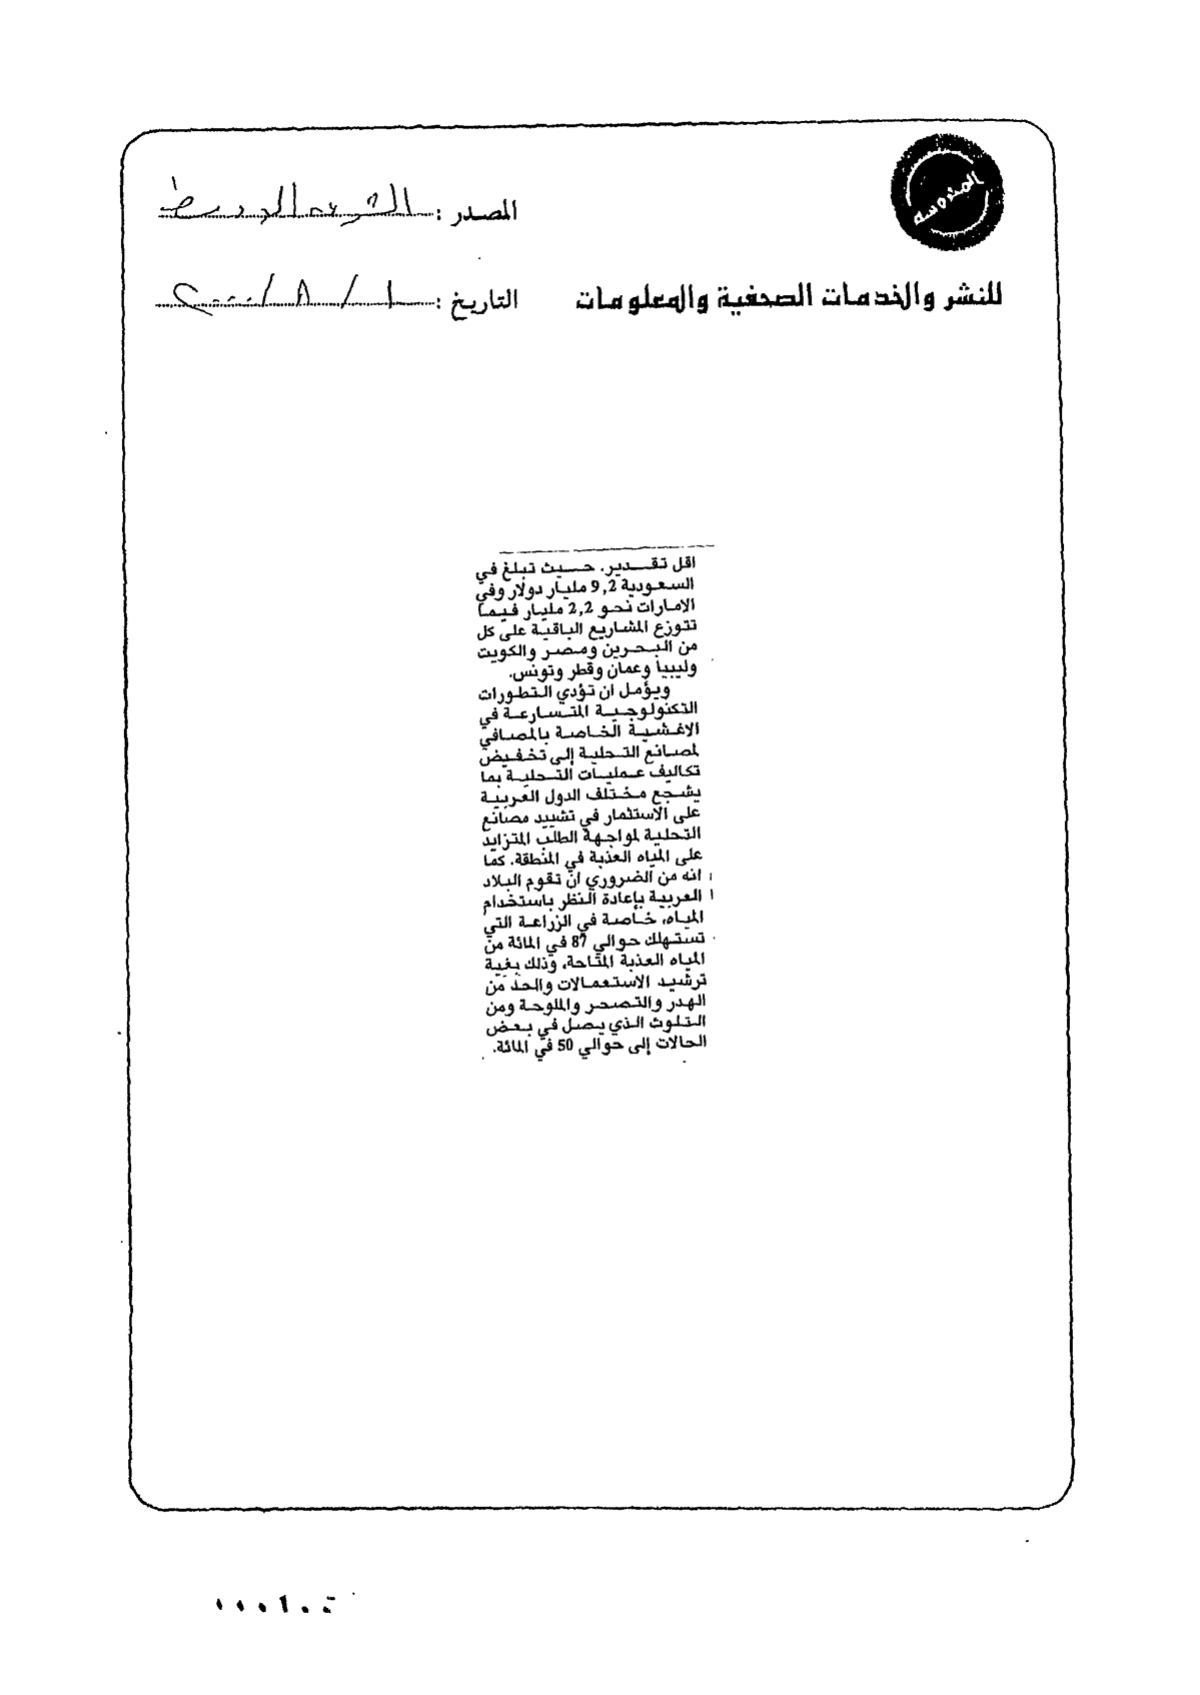 المحروسة
المصدر : الشرق الاوسط
للنشر والخدمات الصحفية والمعلومات
التاريخ : ١ / ٨ / ٢٠٠٠
اقل تقدير. حيث تبلغ في
السعودية 9,2 مليار دولار وفي
الامارات نحو 2,2 مليار فيما
تتوزع المشاريع الباقية على كل
من البحرين ومصر والكويت
وليبيا وعمان وقطر وتونس.
ويؤمل ان تؤدي التطورات
التكنولوجية المتسارعة في
الاغشية الخاصة بالمصافي
لمصانع التحلية إلى تخفيض
تكاليف عمليات التحلية بما
يشجع مختلف الدول العربية
على الاستثمار في تشييد مصانع
التحلية لمواجهة الطلب المتزايد
على المياه العذبة في المنطقة. كما
انه من الضروري ان تقوم البلاد
العربية بإعادة النظر باستخدام
المياه، خاصة في الزراعة التي
تستهلك حوالي 87 في المائة من
المياه العذبة المتاحة، وذلك بغية
ترشيد الاستعمالات والحد من
الهدر والتصحر والملوحة ومن
التلوث الذي يصل في بعض
الحالات إلى حوالي 50 في المائة.